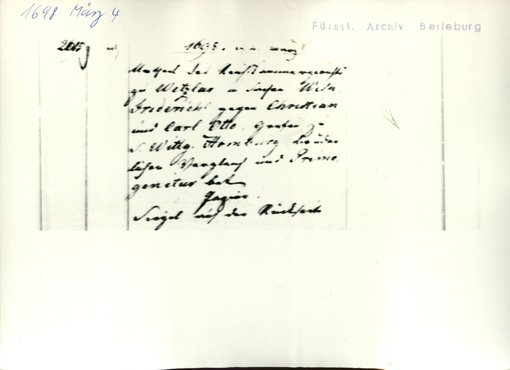 1698 März 4
Fürstl. Archiv Berleburg
1698. März
Urtheil des Reichskammergerichts
zu Wetzlar in Sachen
Friederich gegen Christian
und Carl Otto, Grafen zu
S. Wittg. Homburg brüder
lichen Vergleich und Primo
genitur bet.
Papier.
Siegel auf der Rückseite